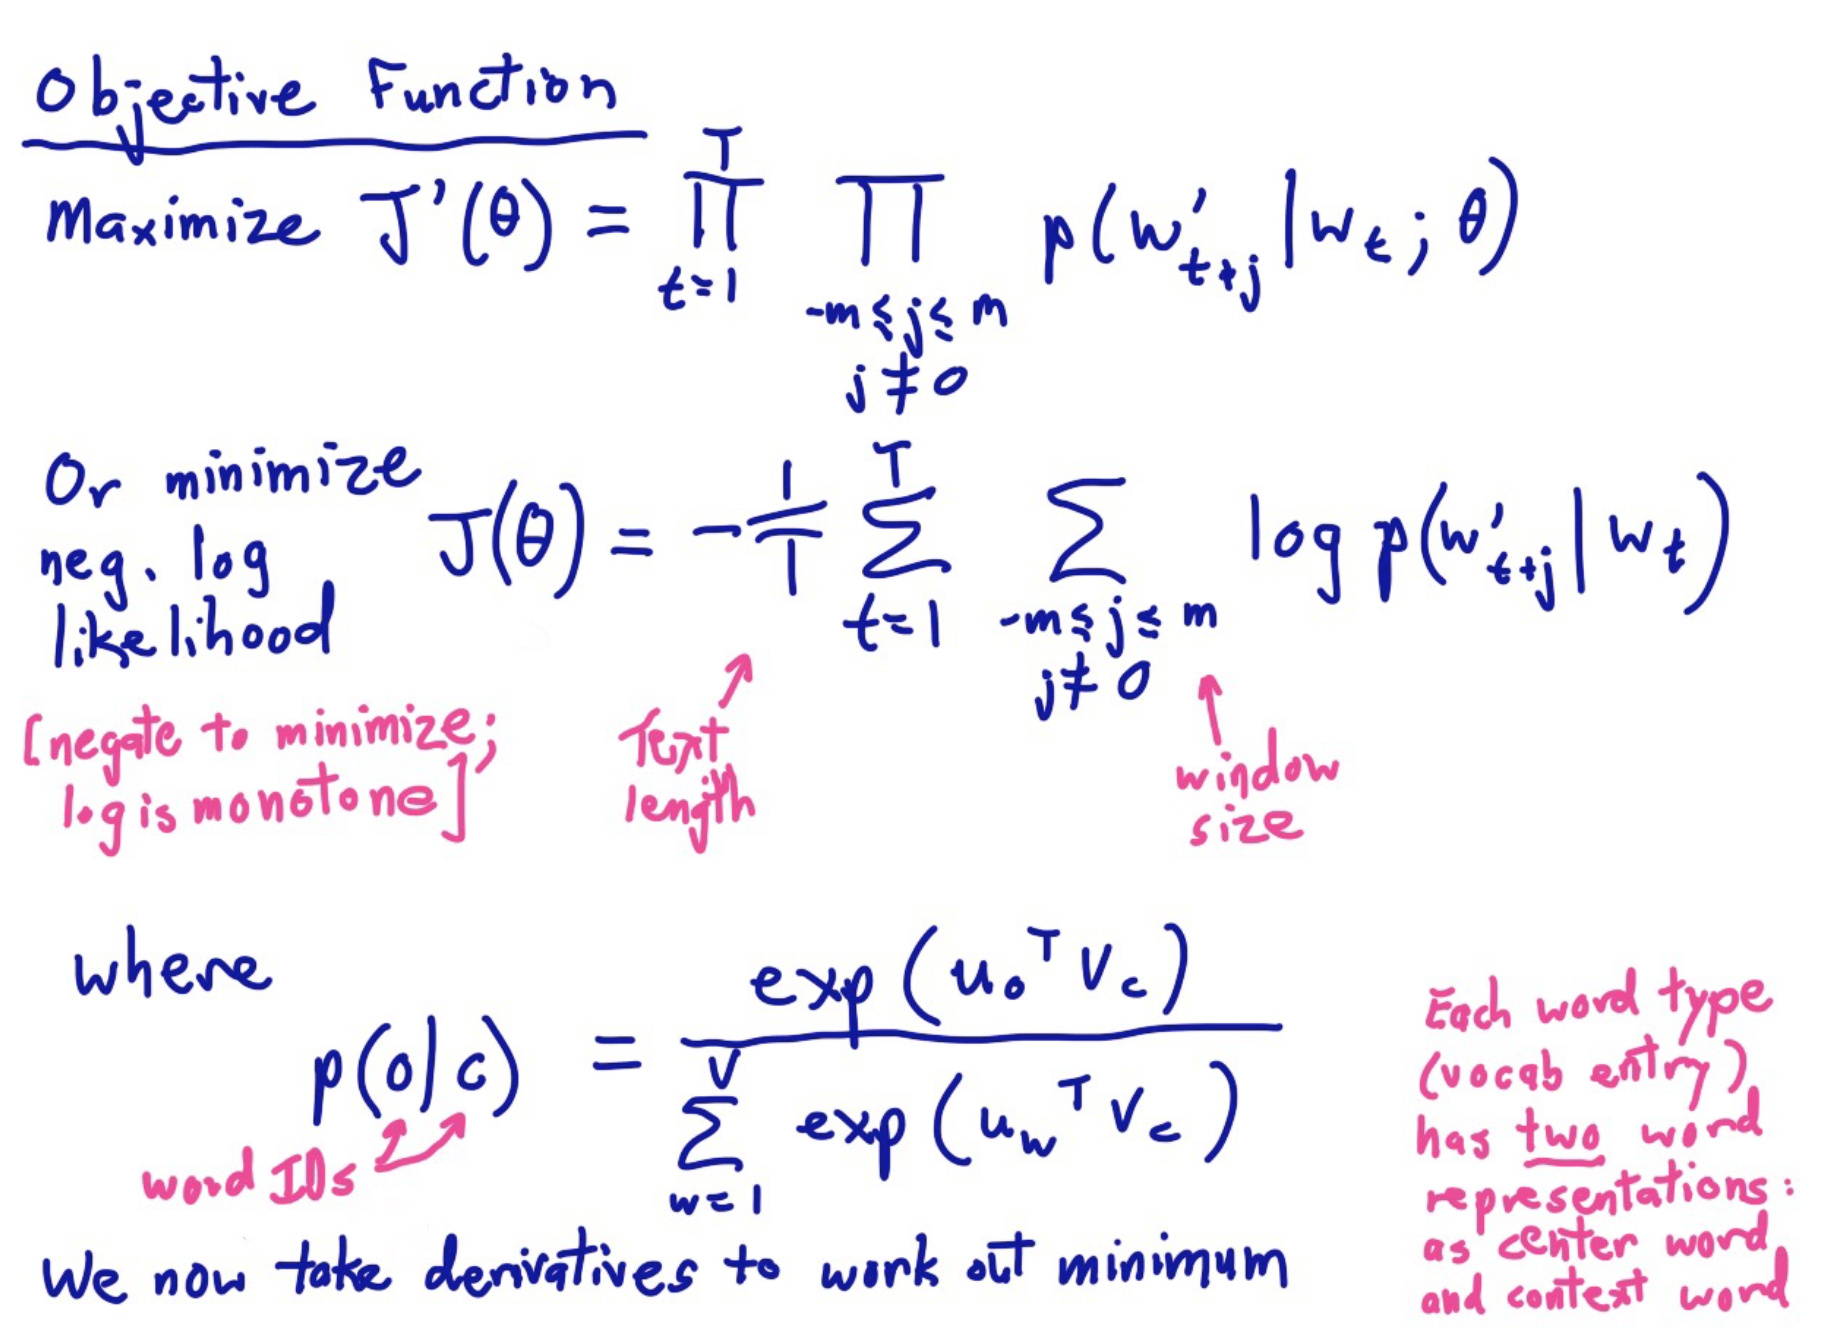 Objective Function
Maximize J'(θ) = ∏_{t=1}^{T} ∏_{-m≤j≤m, j≠0} p(w'_{t+j} | w_t ; θ)
Or minimize neg. log likelihood J(θ) = -1/T ∑_{t=1}^{T} ∑_{-m≤j≤m, j≠0} log p(w'_{t+j} | w_t)
[negate to minimize;
log is monotone]
Text
length
window
size
where
p(o|c) = exp(u_o^T v_c) / ∑_{w=1}^{V} exp(u_w^T v_c)
word IDs
Each word type
(vocab entry)
has two word
representations:
as center word
and context word
We now take derivatives to work out minimum